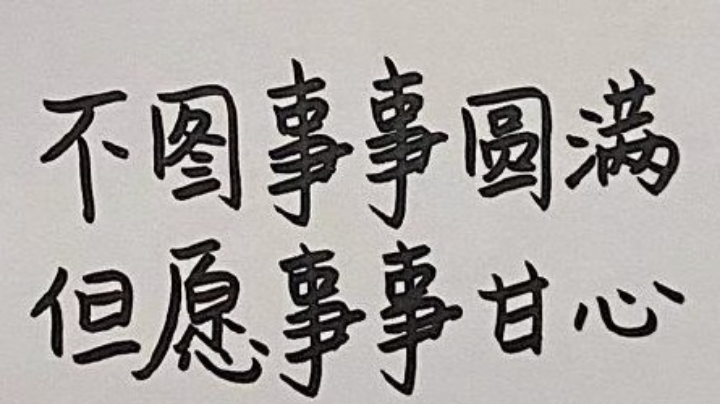 不图事事圆满
但愿事事甘心